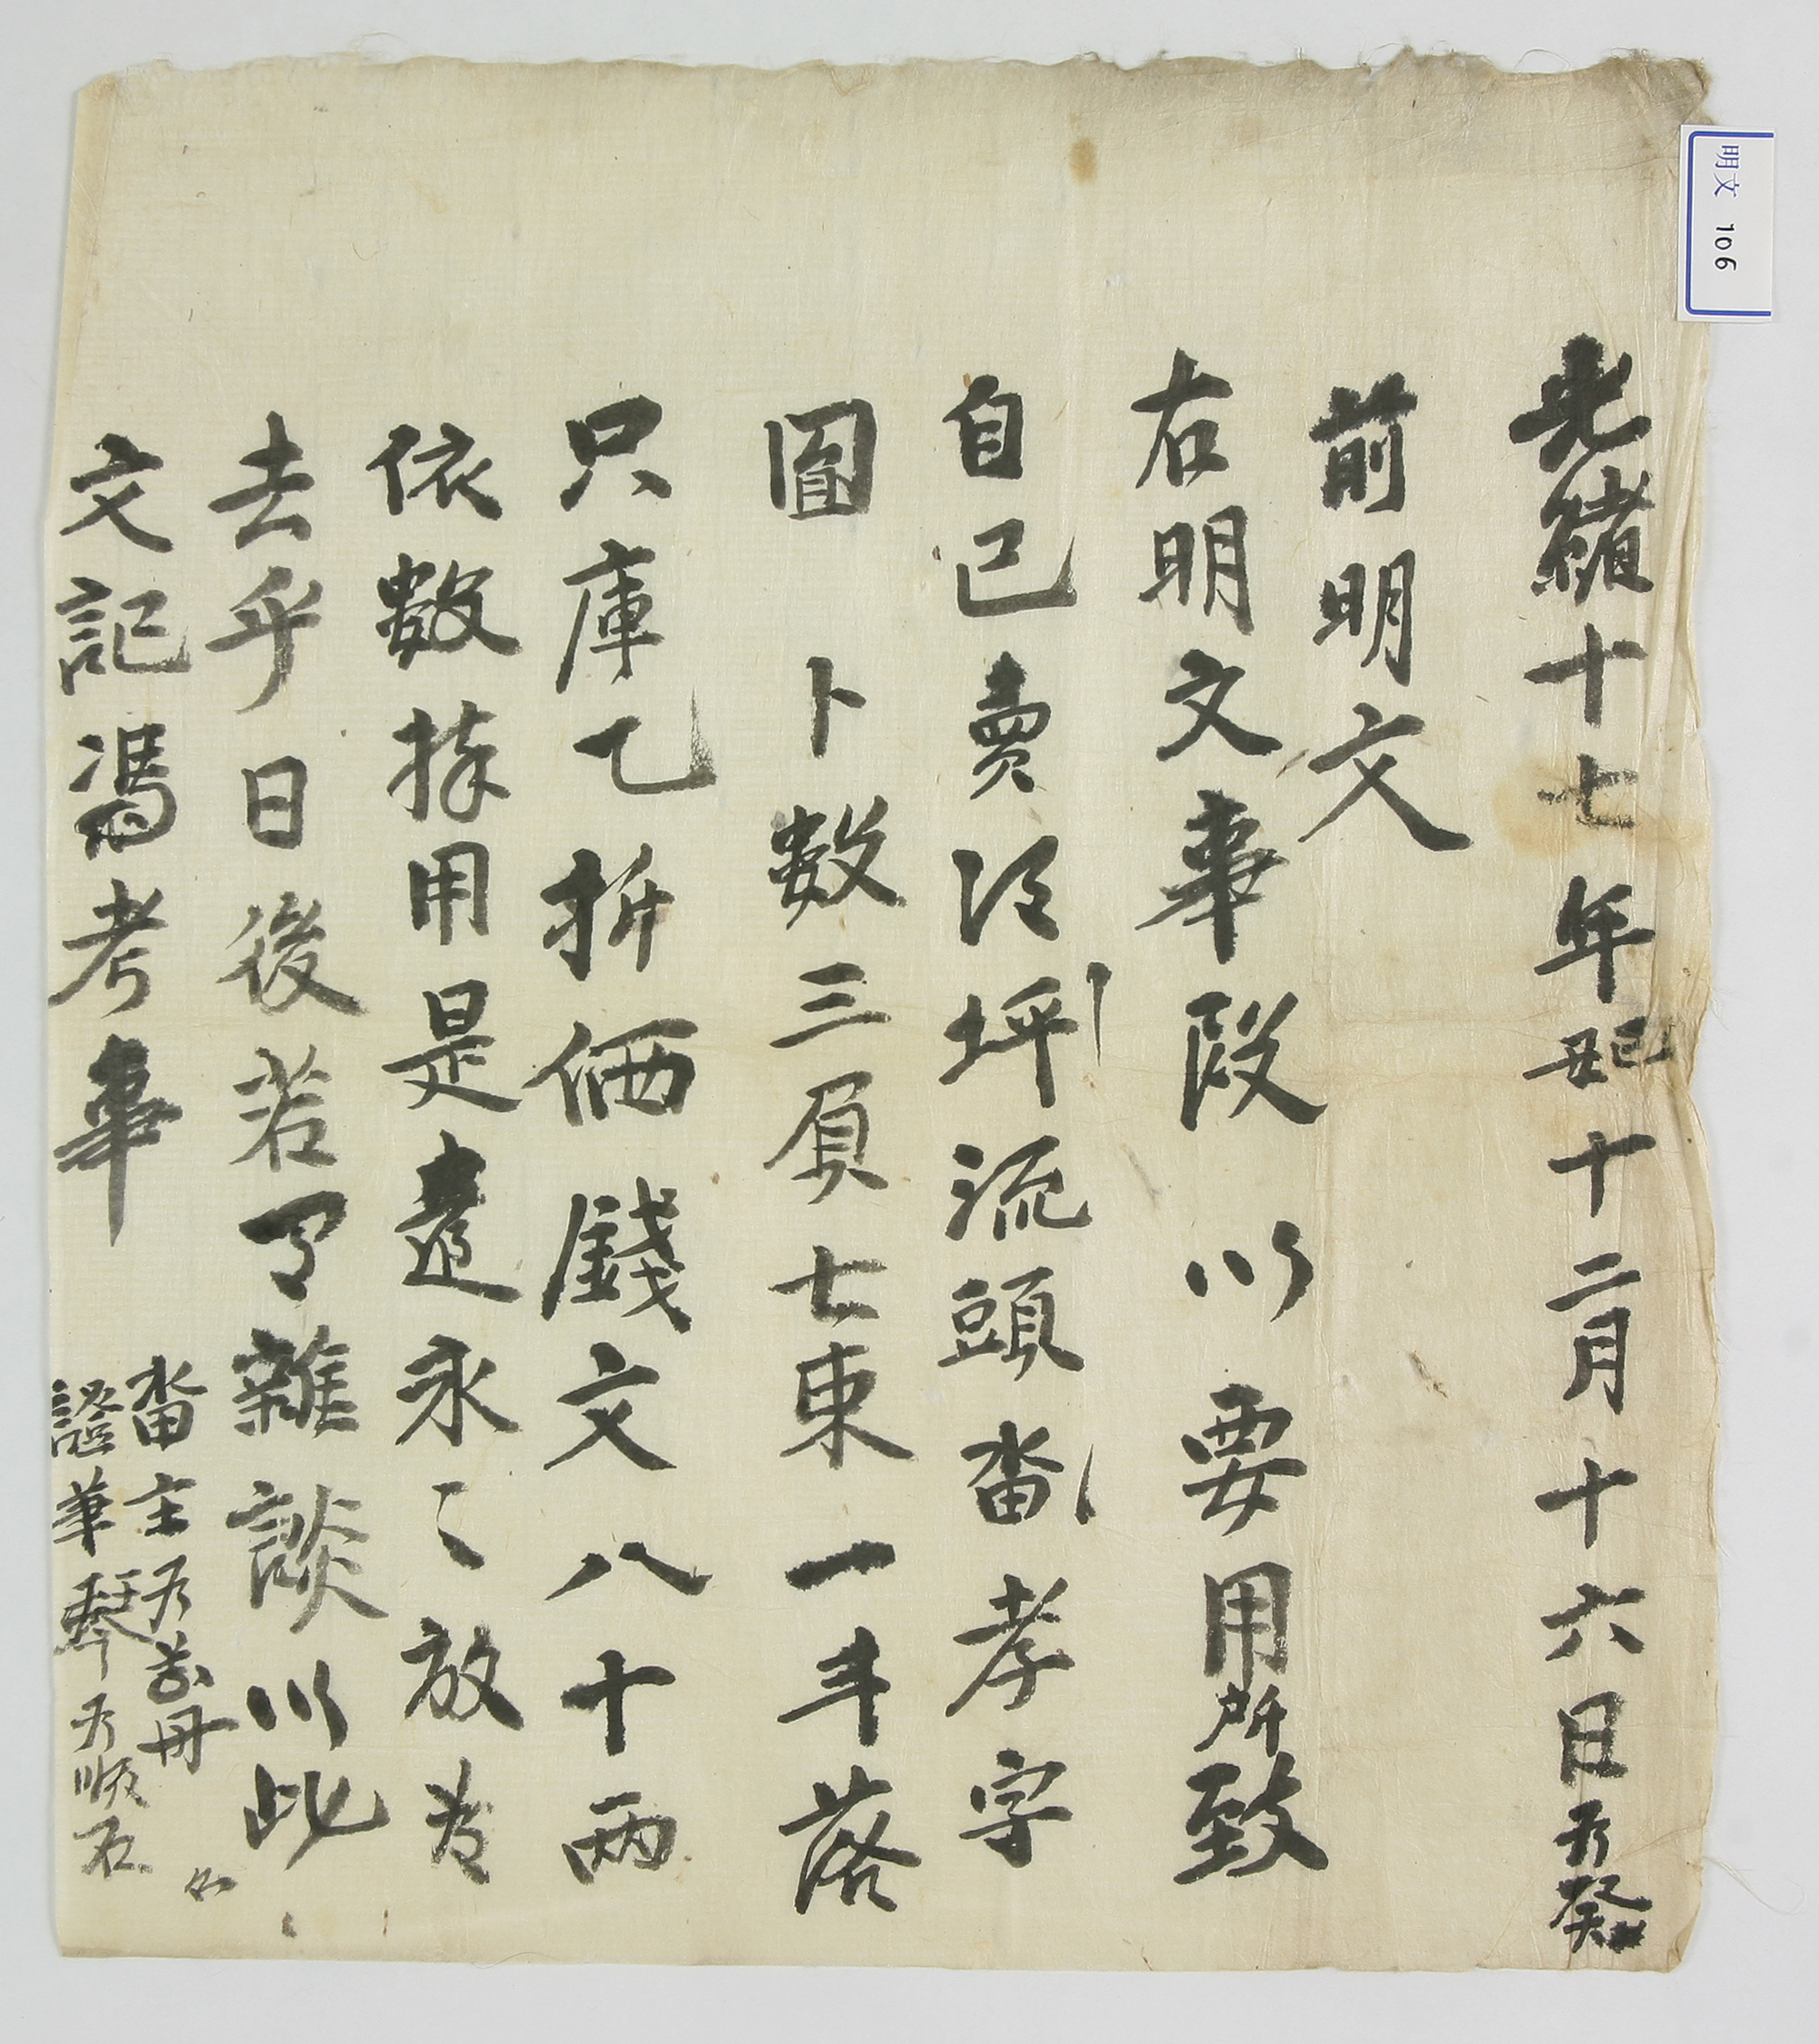 光緖十七年丑己十二月十六日
前明文
右明文事段以要用所致
自己賣冷坪流頭畓孝字
圓卜數三負七束一斗落
只庫乙折価錢文八十兩
依數捧用是遣永〻放賣
去乎日後若有雜談以此
文記憑考事
畓主
證筆
明文 106